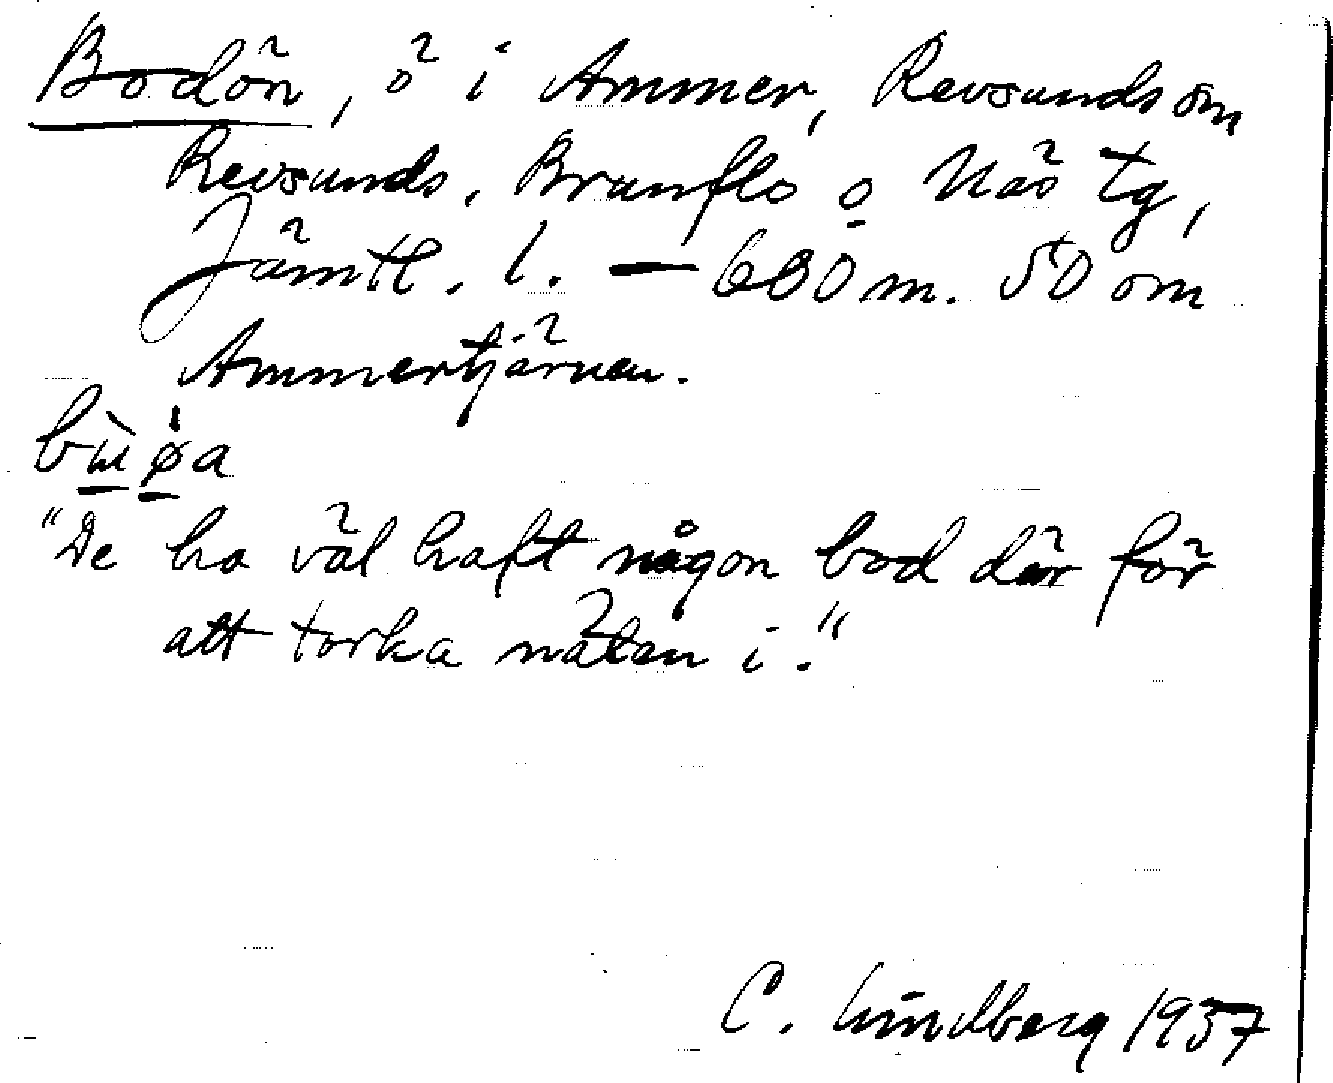 Bodön, ö i Ammer, Revsunds sn
Revsunds, Brunflo o Näs tg,
Jämtl. l. — 680 m. SO om
Ammertjärnen.
"De ha väl haft någon bod där för
att torka näten i."
C. Lindberg 1937